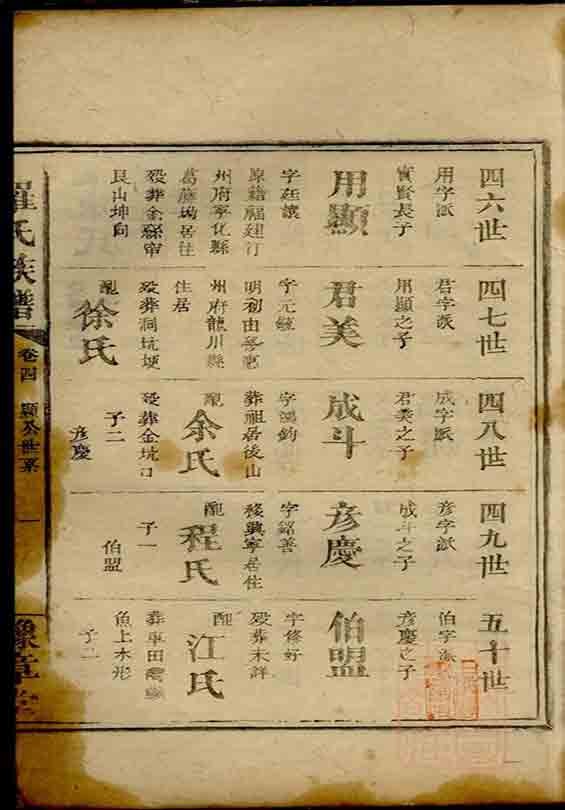 四六世
用字派
實賢長子
用顯
字廷讓
原籍福建汀
州府寧化縣
葛藤坳居住
歿葬金
艮山坤向
四七世
君字派
用顯之子
君美
字元
明初由
州府龍川縣
住居
歿葬洞坑埂
配
徐氏
四八世
成字派
君美之子
成斗
字鴻鈞
葬祖居後山
配
余氏
歿葬金坑口
子二
彥慶
四九世
彥字派
成斗之子
彥慶
字銘善
移興寧居住
配
程氏
子一
伯盟
五十世
伯字派
彥慶之子
伯盟
字修好
歿葬未詳
配
江氏
葬車田
魚上水形
子二
羅氏族譜
卷四
顯公世系
一
豫章堂